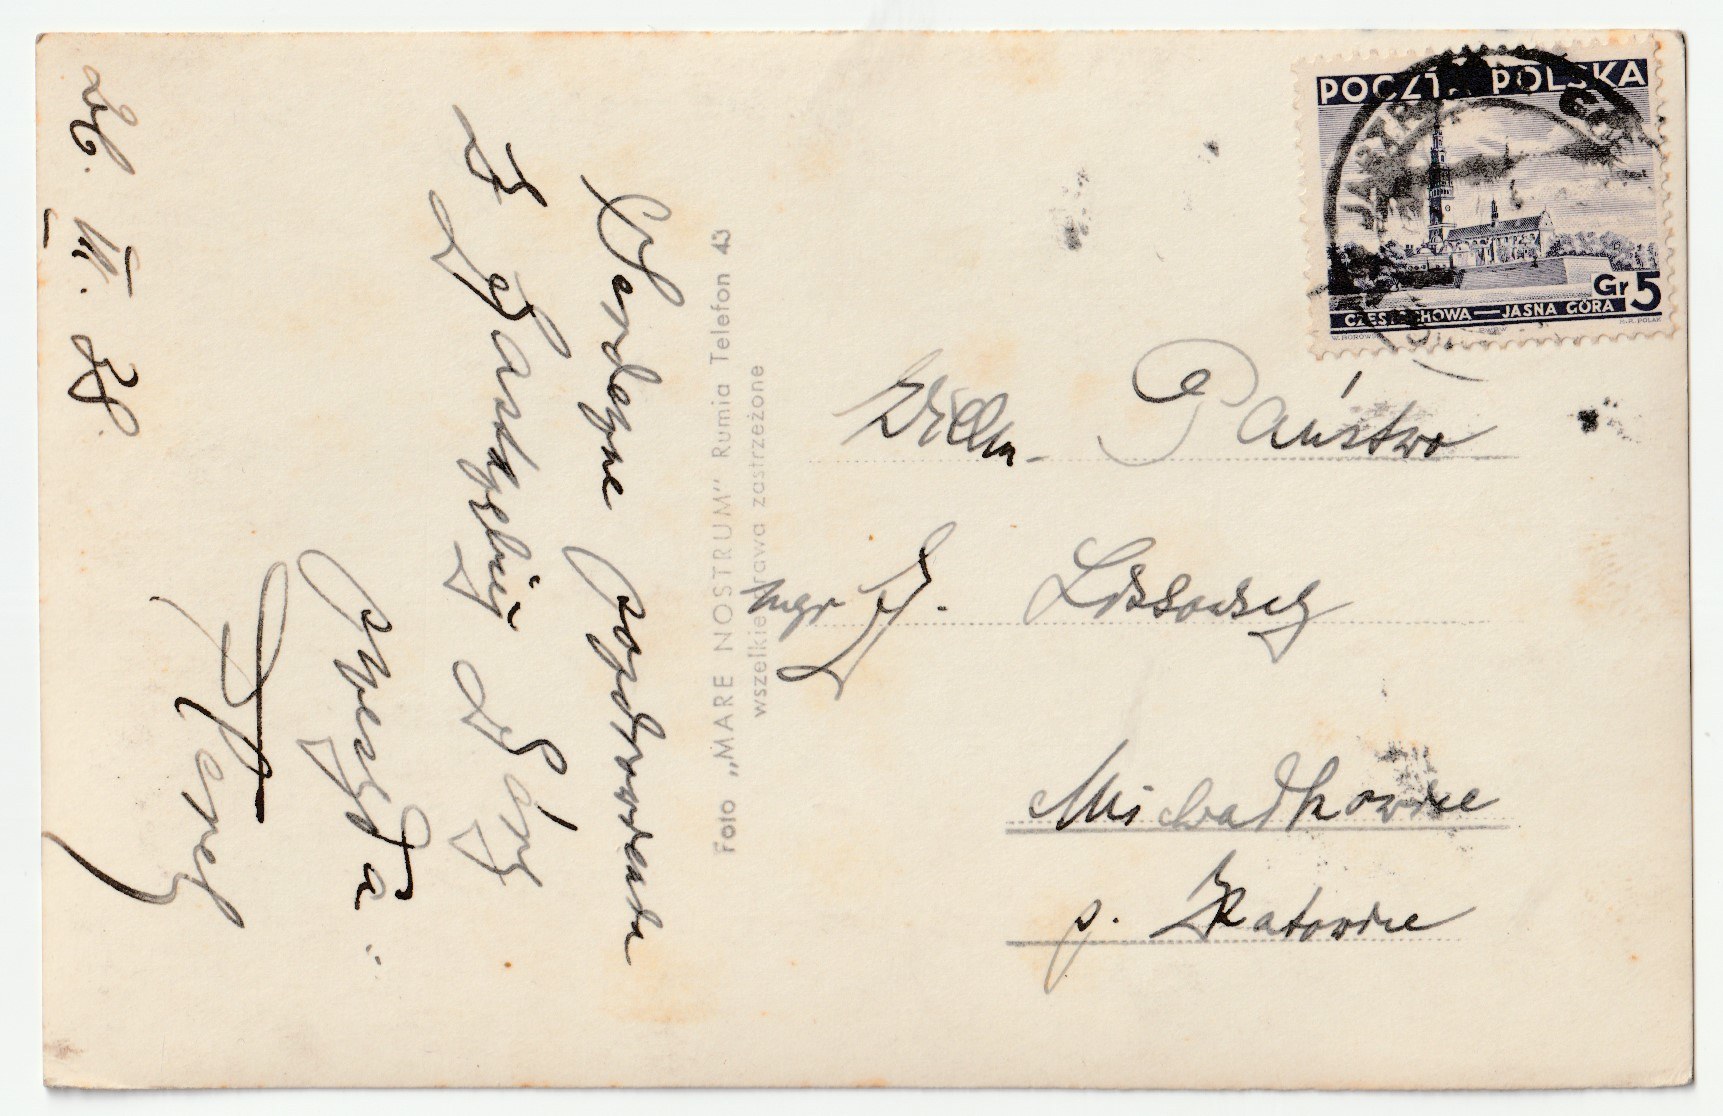 26. VI. 38.
Serdeczne pozdrowienia
z Jastrzębiej Góry
przesyła
Foto „MARE NOSTRUM“ Rumia Telefon 43
wszelkie prawa zastrzeżone
POCZTA POLSKA
Gr 5
CZĘSTOCHOWA—JASNA GÓRA
JASTRZ
WPaństwo
mgr J. Lissowscy
Michałkowice
p. Katowice